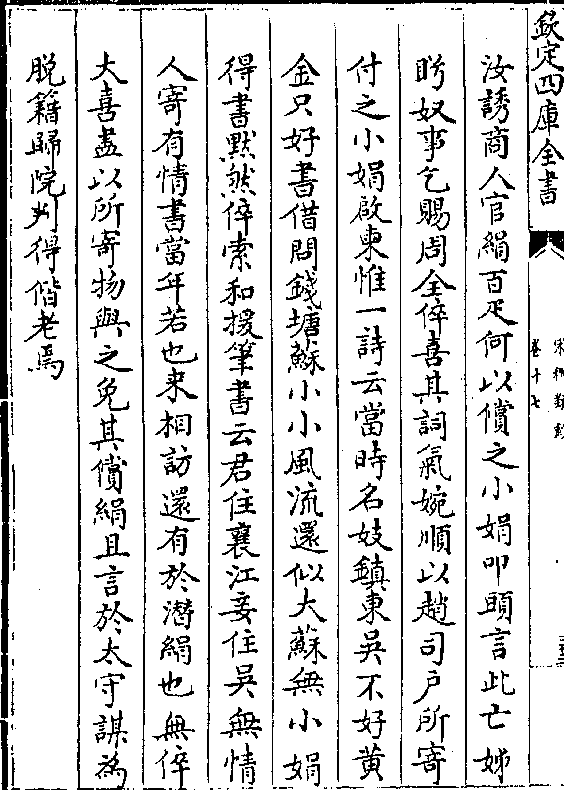 欽定四庫全書
宋稗類鈔
卷十七
汝誘商人官絹百疋何以償之小娟叩頭言此亡姊
盼奴事乞賜周全倅喜其詞氣婉順以趙司戶所寄
付之小娟啟柬惟一詩云當時名妓鎮東吳不好黃
金只好書借問錢塘蘇小小風流還似大蘇無小娟
得書默然倅索和援筆書云君住襄江妾住吳無情
人寄有情書當年若也来相訪還有於潛絹也無倅
大喜盡以所寄物與之免其償絹且言於太守謀為
脫籍歸院判得偕老焉